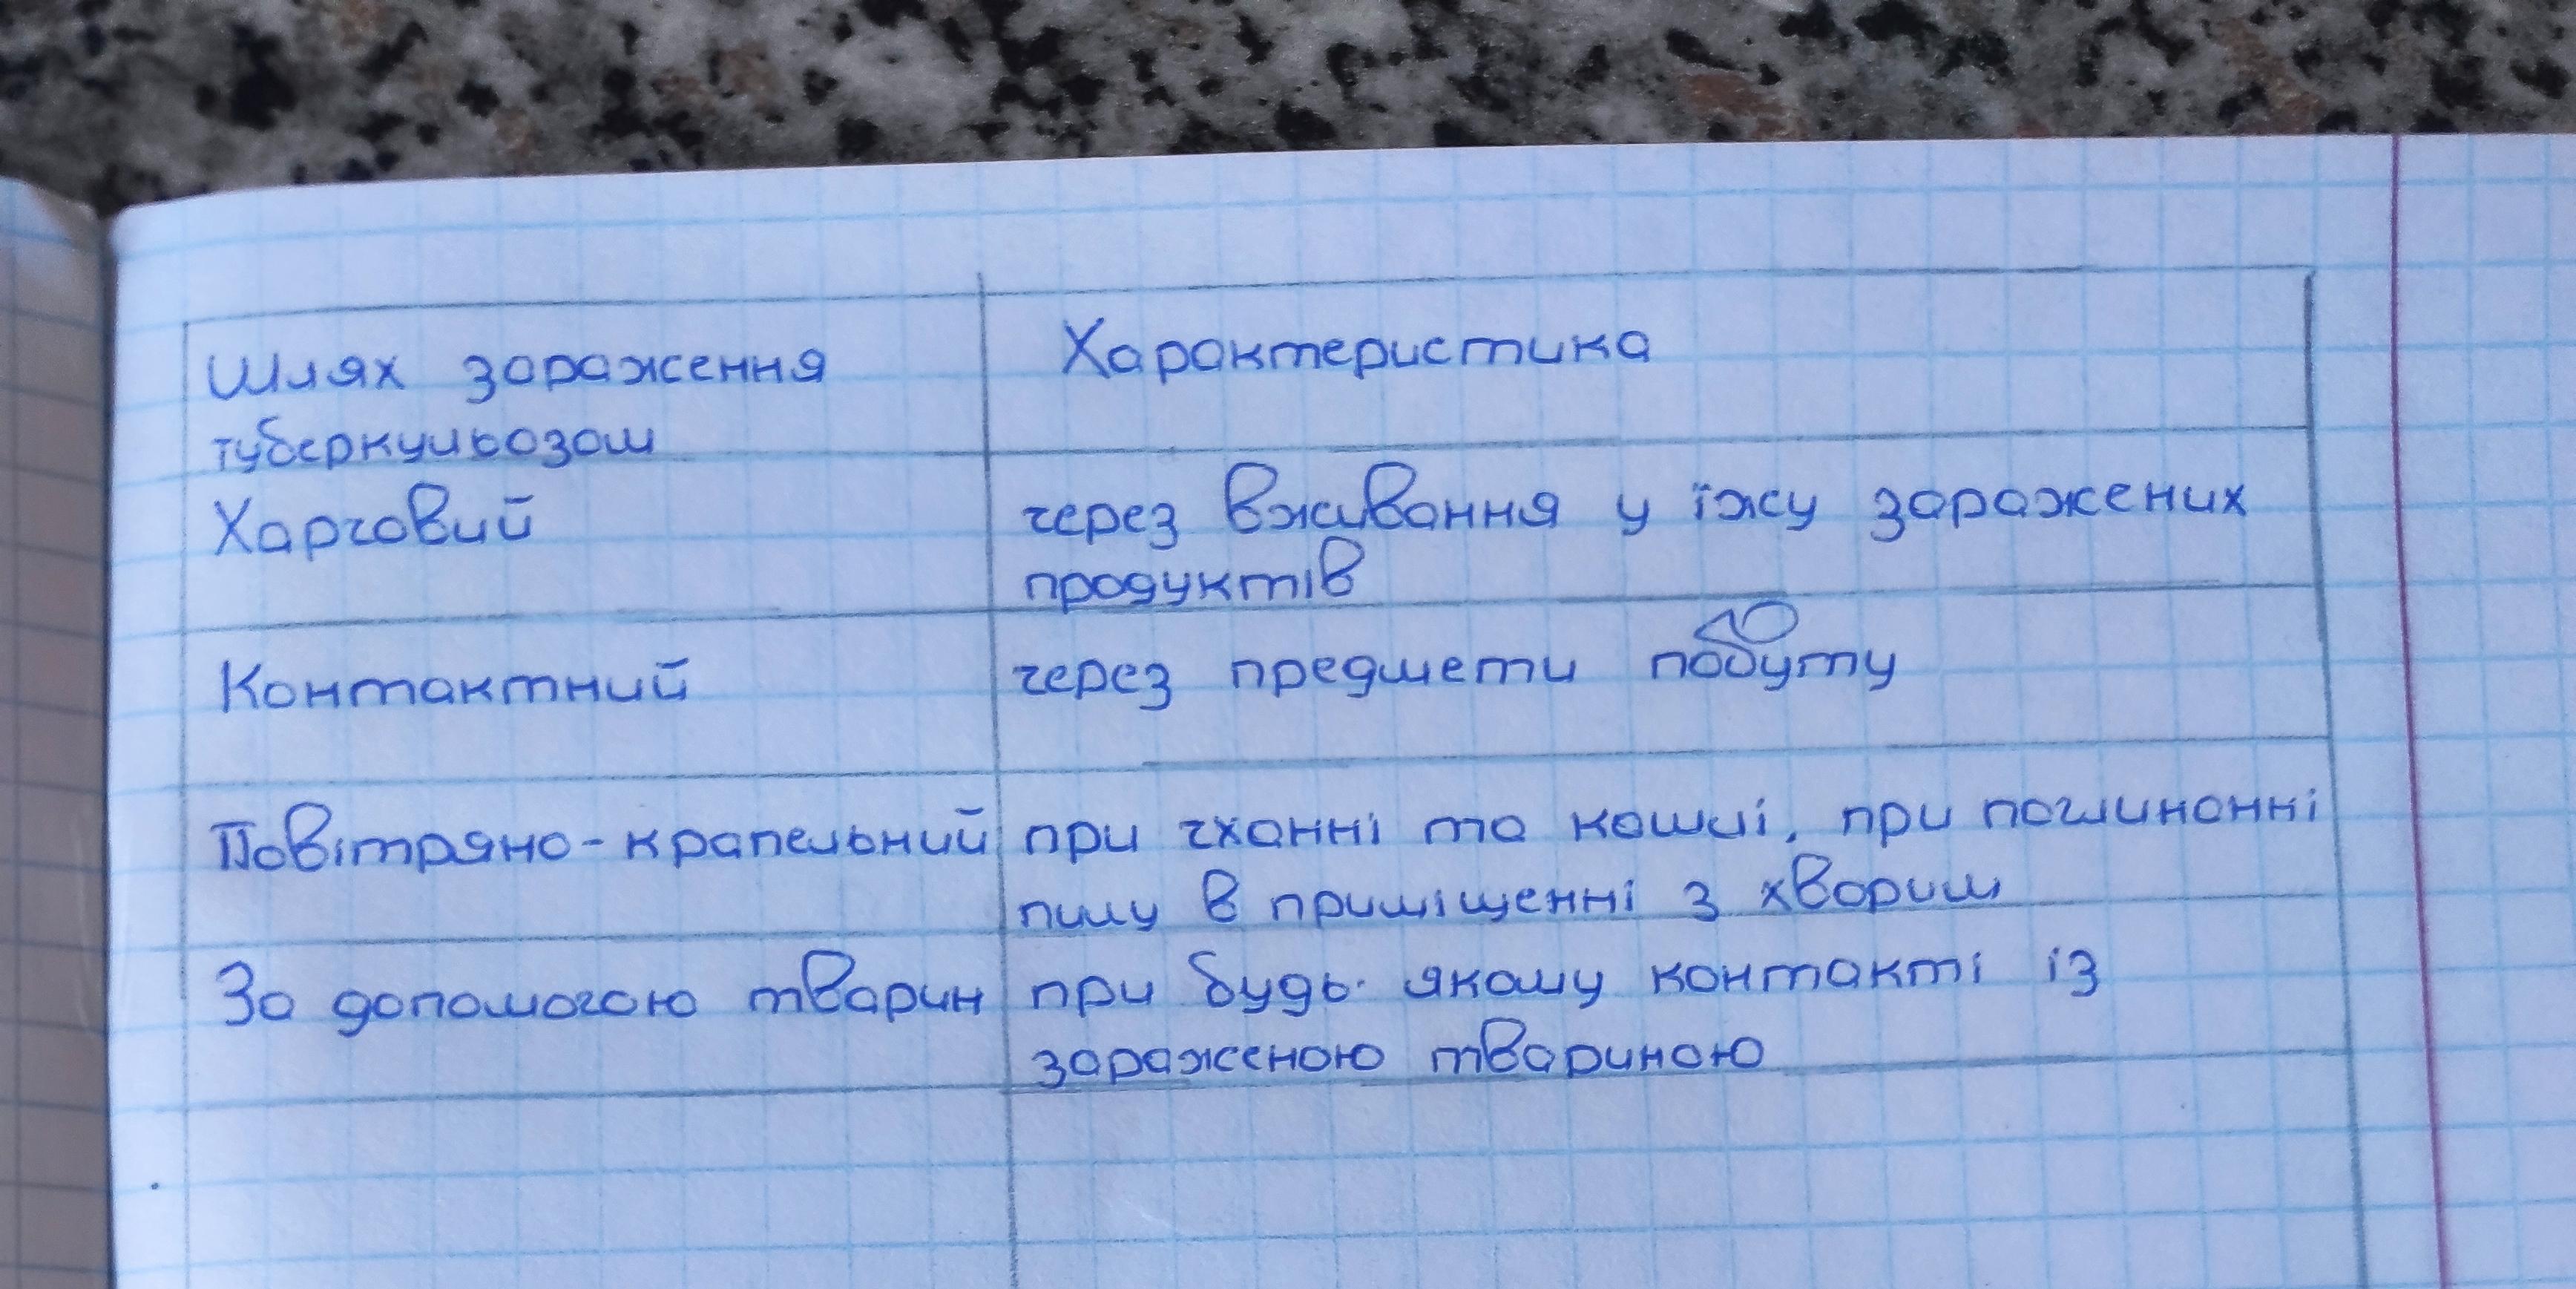 Шлях зараження
туберкульозом
Характеристика
Харчовий
через вживання у їжу заражених
продуктів
Контактний
через предмети побуту
Повітряно-крапельний
при чханні та кашлі, при поглинанні
пилу в приміщенні з хворим
За допомогою тварин
при будь-якому контакті із
зараженою твариною